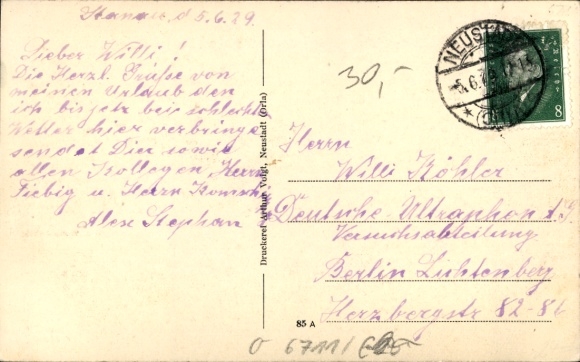 d 5.6.29.
Lieber Willi!
Die Herzl. Grüße von
meinen Urlaub den
ich bis jetz bei schlecht
Wetter hier verbringe
sendet Dir sowie
allen Kollegen Herrn
Liebig u. Herrn
Alex Stephan
Druckerei Arthur Voigt, Neustadt (Orla)
30,-
NEUSTADT
5.6.29
8
Herrn
Willi Köhler
Deutsche Ultraphon A.G
Versuchsabteilung
Berlin Lichtenberg
Herzbergstr 82-86
85 A
O 6711/